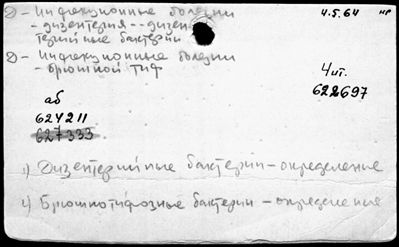 2) - Инфекционные болезни
- дизентерия -- дизен-
терийные бактерии
2) - Инфекционные болезни
- брюшной тиф
4.5.64 нр
Чит.
622697
аб
624211
627333
1) Дизентерийные бактерии - определение
4) Брюшнотифозные бактерии - определение